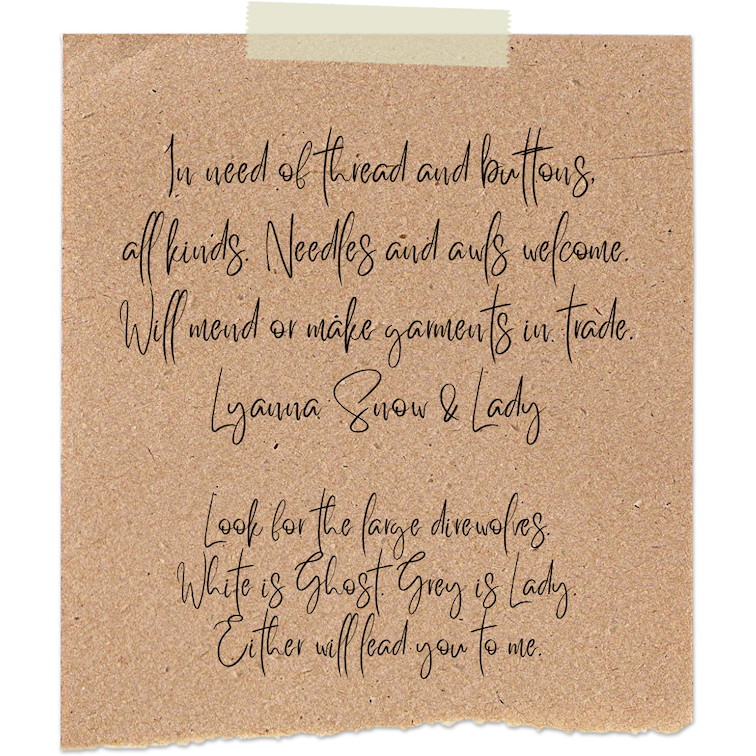 In need of thread and buttons,
all kinds. Needles and awls welcome.
Will mend or make garments in trade.
Lyanna Snow & Lady
Look for the large direwolves.
White is Ghost. Grey is Lady.
Either will lead you to me.